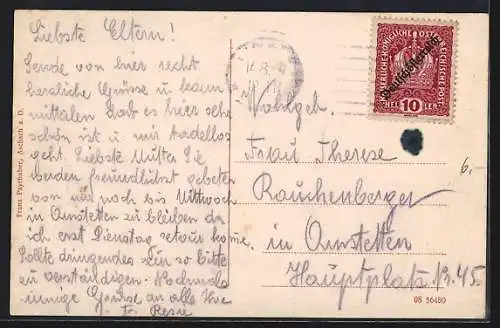 Liebste Eltern!
Sende von hier recht
herzliche Grüsse u. kann
mitteilen daß es hier sehr
schön ist u. mir tadellos
geht. Liebste Mutter Sie
werden freundlichst gebeten
von mir noch bis Mittwoch
in Amstetten zu bleiben da
ich erst Dienstag retour komme.
Sollte dringendes sein so bitte
zu verständigen. Nochmals
innige Grüsse an alle Ihre
Resie
Franz Psychober, Aschach a. D.
KAISERLICHE KÖNIGLICHE ÖSTERREICHISCHE POST
Deutschösterreich
10
HELLER
Wohlgeb.
Frau Therese
Rauchenberger
in Amstetten
Hauptplatz Nr. 45.
6.-
08 56480